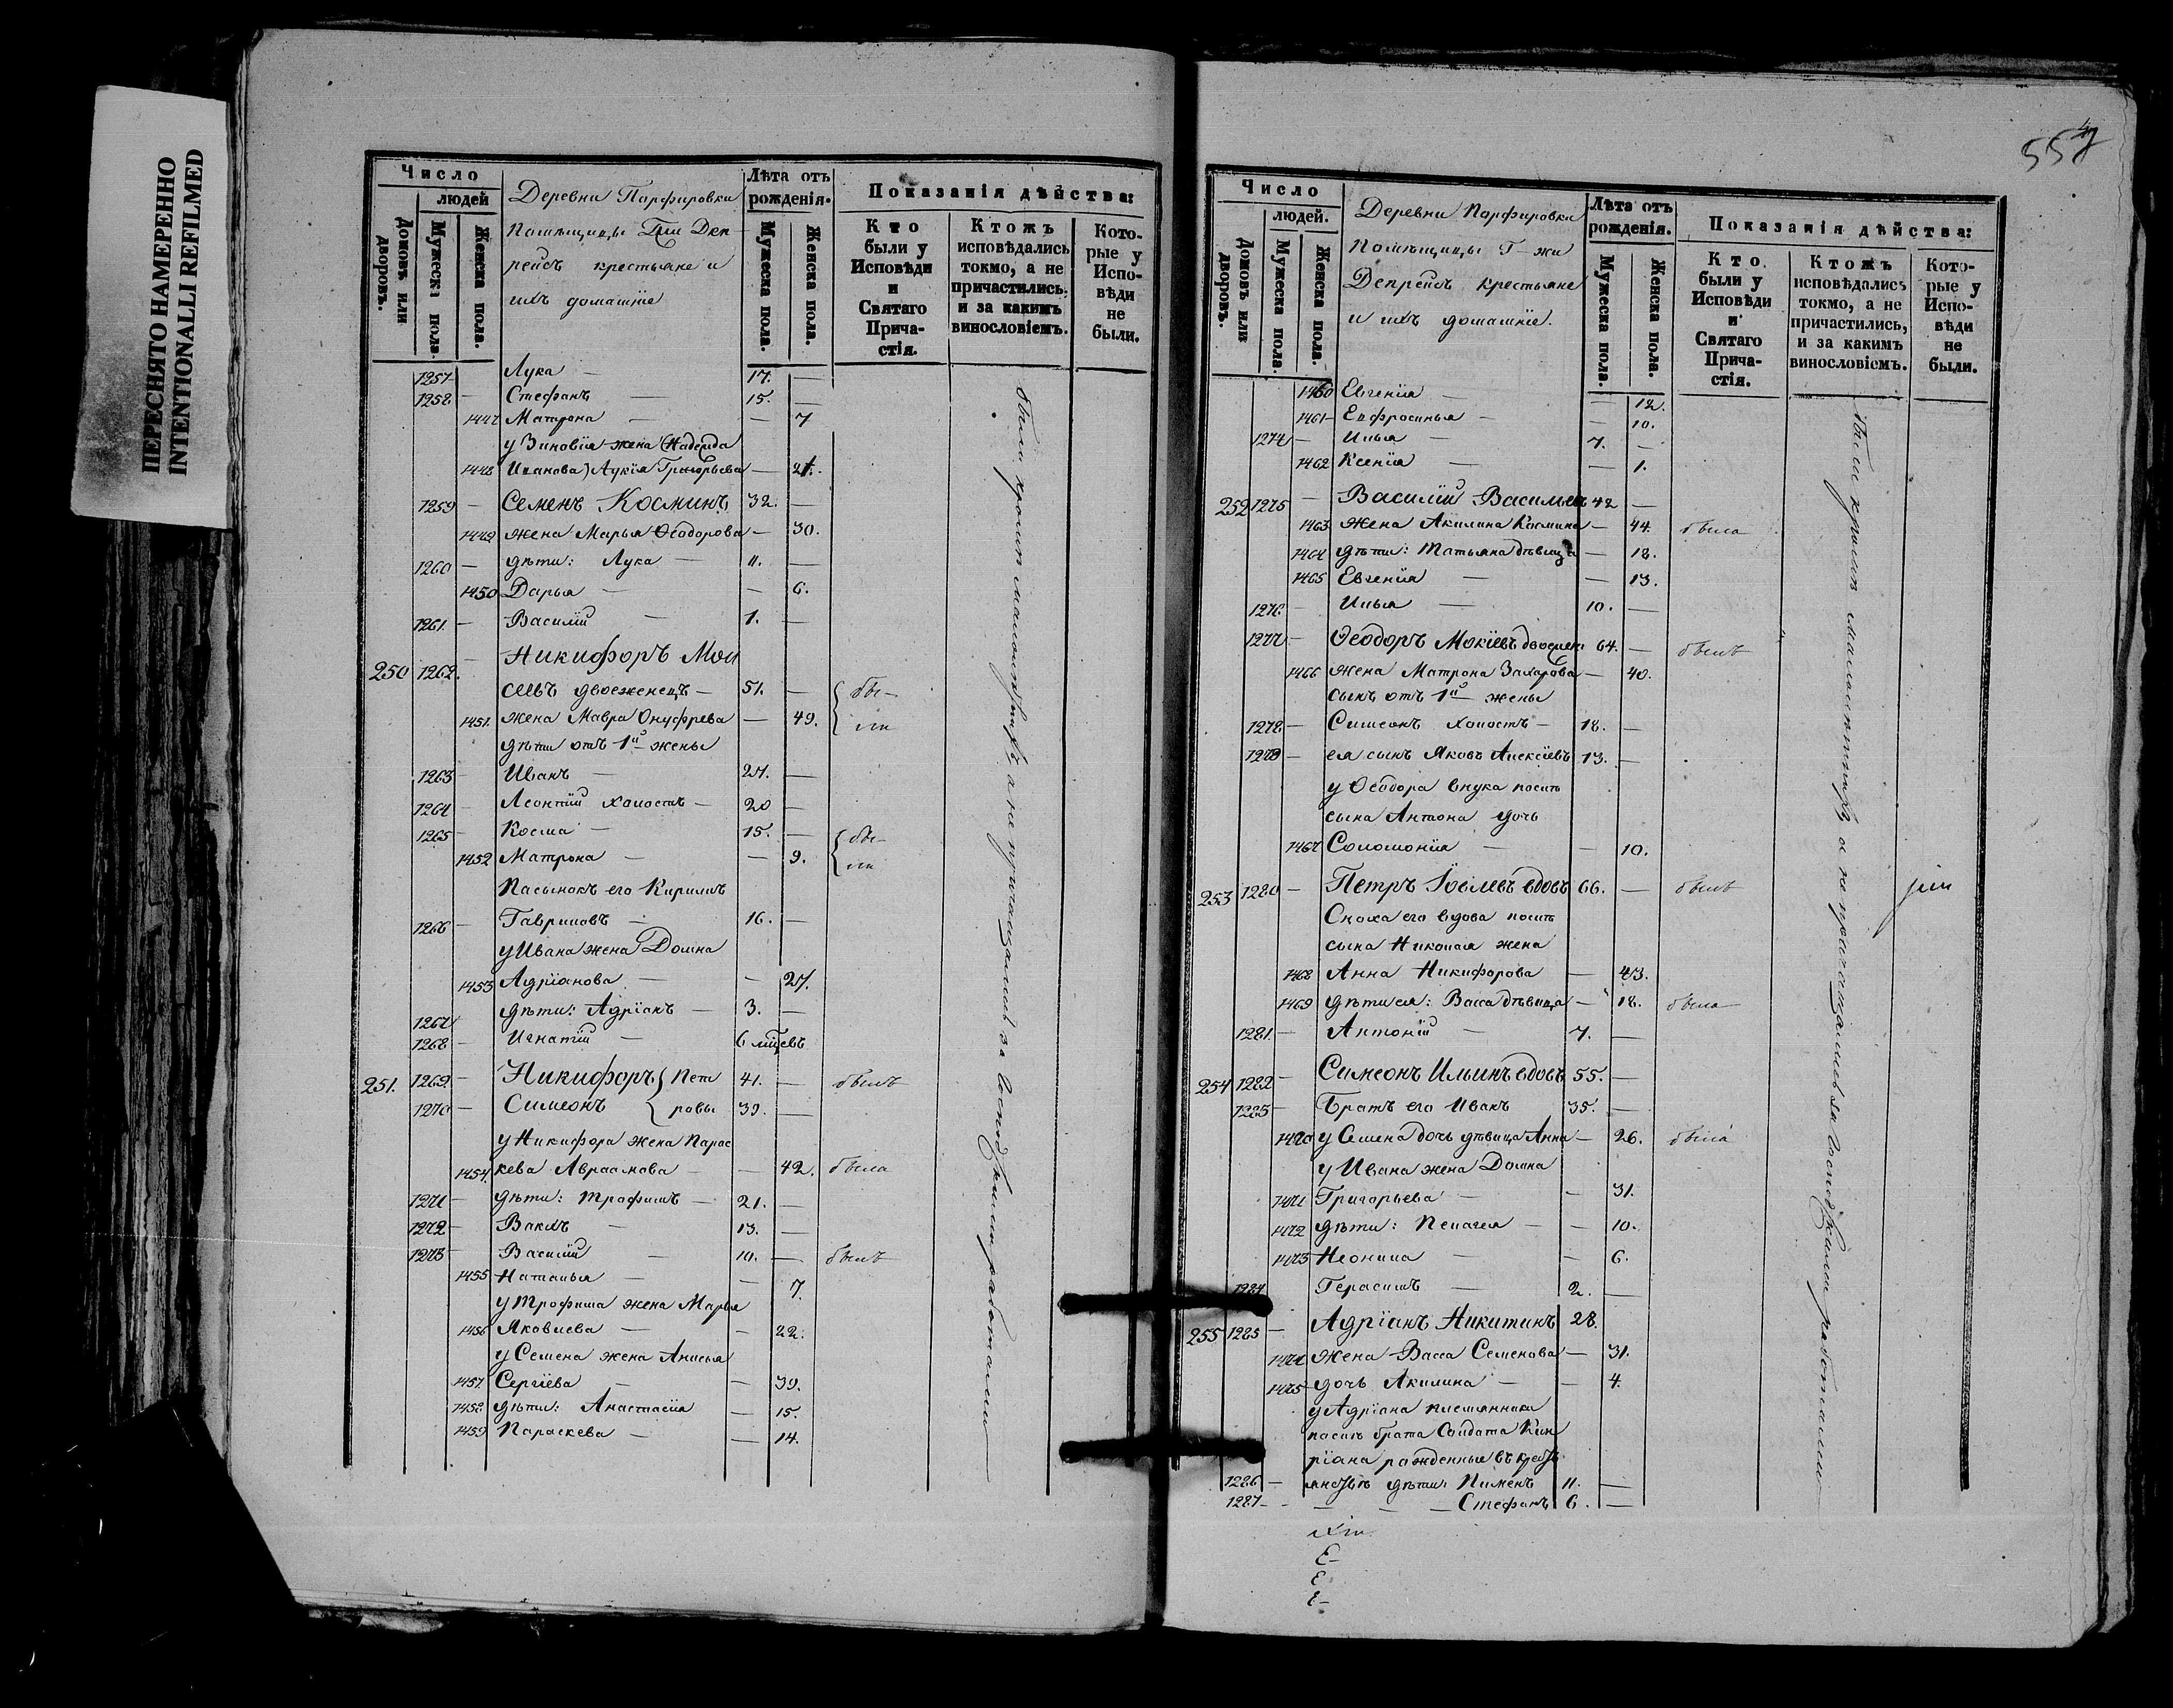 ПЕРЕСНЯТО НАМЕРЕННО
INTENTIONALLI REFILMED
Число
людей
Домовъ или дворовъ.
Мужеска пола.
Женска пола.
Деревни Парфировки
помѣщицы Гжи Деп-
рейсъ крестьяне и
ихъ домашніе
Лѣта отъ рожденія.
Мужеска пола.
Женска пола.
Показанія дѣйства:
Кто были у Исповѣди и Святаго Прича-стія.
Ктожъ исповѣдались токмо, а не причастились, и за какимъ винословіемъ.
Кото-рые у Испо-вѣди не были.
1257 — Лука — 17. —
1258 — Стефанъ — 15. —
1447 Матрона — — 7
у Зиновія жена (Надежда
1448 Иванова) Лукія Григорьева — 21.
1259 — Семенъ Косминъ 32. —
1449 жена Марья Ѳеодорова — 30.
1260 — дѣти: Лука — 11. —
1450 Дарья — — 6.
1261. — Василій — 1. —
250 1262. — Никифоръ Мои
сѣевъ двоеженецъ — 51. — бы-
1451. жена Мавра Онуфрева — 49. ли
дѣти отъ 1й жены
1263 — Иванъ — 27. —
1264 — Леонтій холостъ — 20 —
1265 — Косма — 15. — бы-
1452 Матрона — — 9. ли
Пасынокъ его Кирилъ
1266 — Гавриловъ — 16. —
у Ивана жена Домна
1453 Адріанова — — 27.
1267 дѣти: Адріанъ — 3. —
1268 — Игнатій — 6 мцевъ
251. 1269 — Никифоръ { Пет 41. — былъ
1270 — Симеонъ { ровы 39. —
у Никифора жена Парас
1454. кева Авраамова — — 42. была
1271 — дѣти: Трофимъ — 21. —
1272 — Вакхъ — 13. —
1273 — Василій — 10. — былъ
1455 Наталья — — 7.
у Трофима жена Марья
1456 Яковлева — — 22.
у Семена жена Анисья
1457 Сергіева — — 39.
1458 дѣти: Анастасія — 15.
1459 Параскева — — 14.
были кромѣ малолѣтнихъ, а не причащались за господскими работами
557
Число
людей.
Домовъ или дворовъ.
Мужеска пола.
Женска пола.
Деревни Порфировки
Помѣщицы Г-жи
Депрейсъ крестьяне
и ихъ домашніе.
Лѣта отъ рожденія.
Мужеска пола.
Женска пола.
Показанія дѣйства:
Кто были у Исповѣди и Святаго Прича-стія.
Ктожъ исповѣдались токмо, а не причастились, и за какимъ винословіемъ.
Кото-рые у Испо-вѣди не были.
1460 Евгенія — — 12.
1461 — Евфросинья — — 10.
1274 — Илья — 7. —
1462 Ксенія — — 1.
252 1275 — Василій Васильевъ 42 —
1463 жена Акилина Космина — 44. была
1464 дѣти: Татьяна дѣвица — 18.
1465 Евгенія — — 13.
1276 — Илья — 10. —
1277 — Ѳеодоръ Мокіевъ двоежен: 64. — былъ
1466 жена Матрона Захарова — 40.
сынъ отъ 1й жены
1278 — Симеонъ холостъ — 18. —
1279 — ея сынъ Яковъ Алексіевъ 13. —
у Ѳеодора внука послѣ
сына Антона дочь
1467 Соломонія — — 10.
253 1280 — Петръ Іовлевъ вдовъ 66. — былъ
Сноха его вдова послѣ
сына Николая жена
1468 Анна Никифорова — 43.
1469 дѣти ея: Васса дѣвица — 18. была
1281. — Антоній — 7. —
254 1282 — Симеонъ Ильинъ вдовъ 55. —
1283 — Братъ его Иванъ 35. —
1470 у Семена дочь дѣвица Анна — 26. была
у Ивана жена Домна
1471 Григорьева — — 31.
1472 дѣти: Пелагея — — 10.
1473 Неонила — — 6.
1284 Герасимъ — 2. —
255 1285 — Адріанъ Никитинъ 28.
1474 жена Васса Семенова — 31.
1475 дочь Акилина — — 4.
у Адріана племянники
послѣ брата Солдата Кип
ріана рожденные въ кресть
1286 — янствѣ дѣти: Пименъ 11. —
1287 — — — Стефанъ 6. —
Были кромѣ малолѣтнихъ, а не причащались за господскими работами